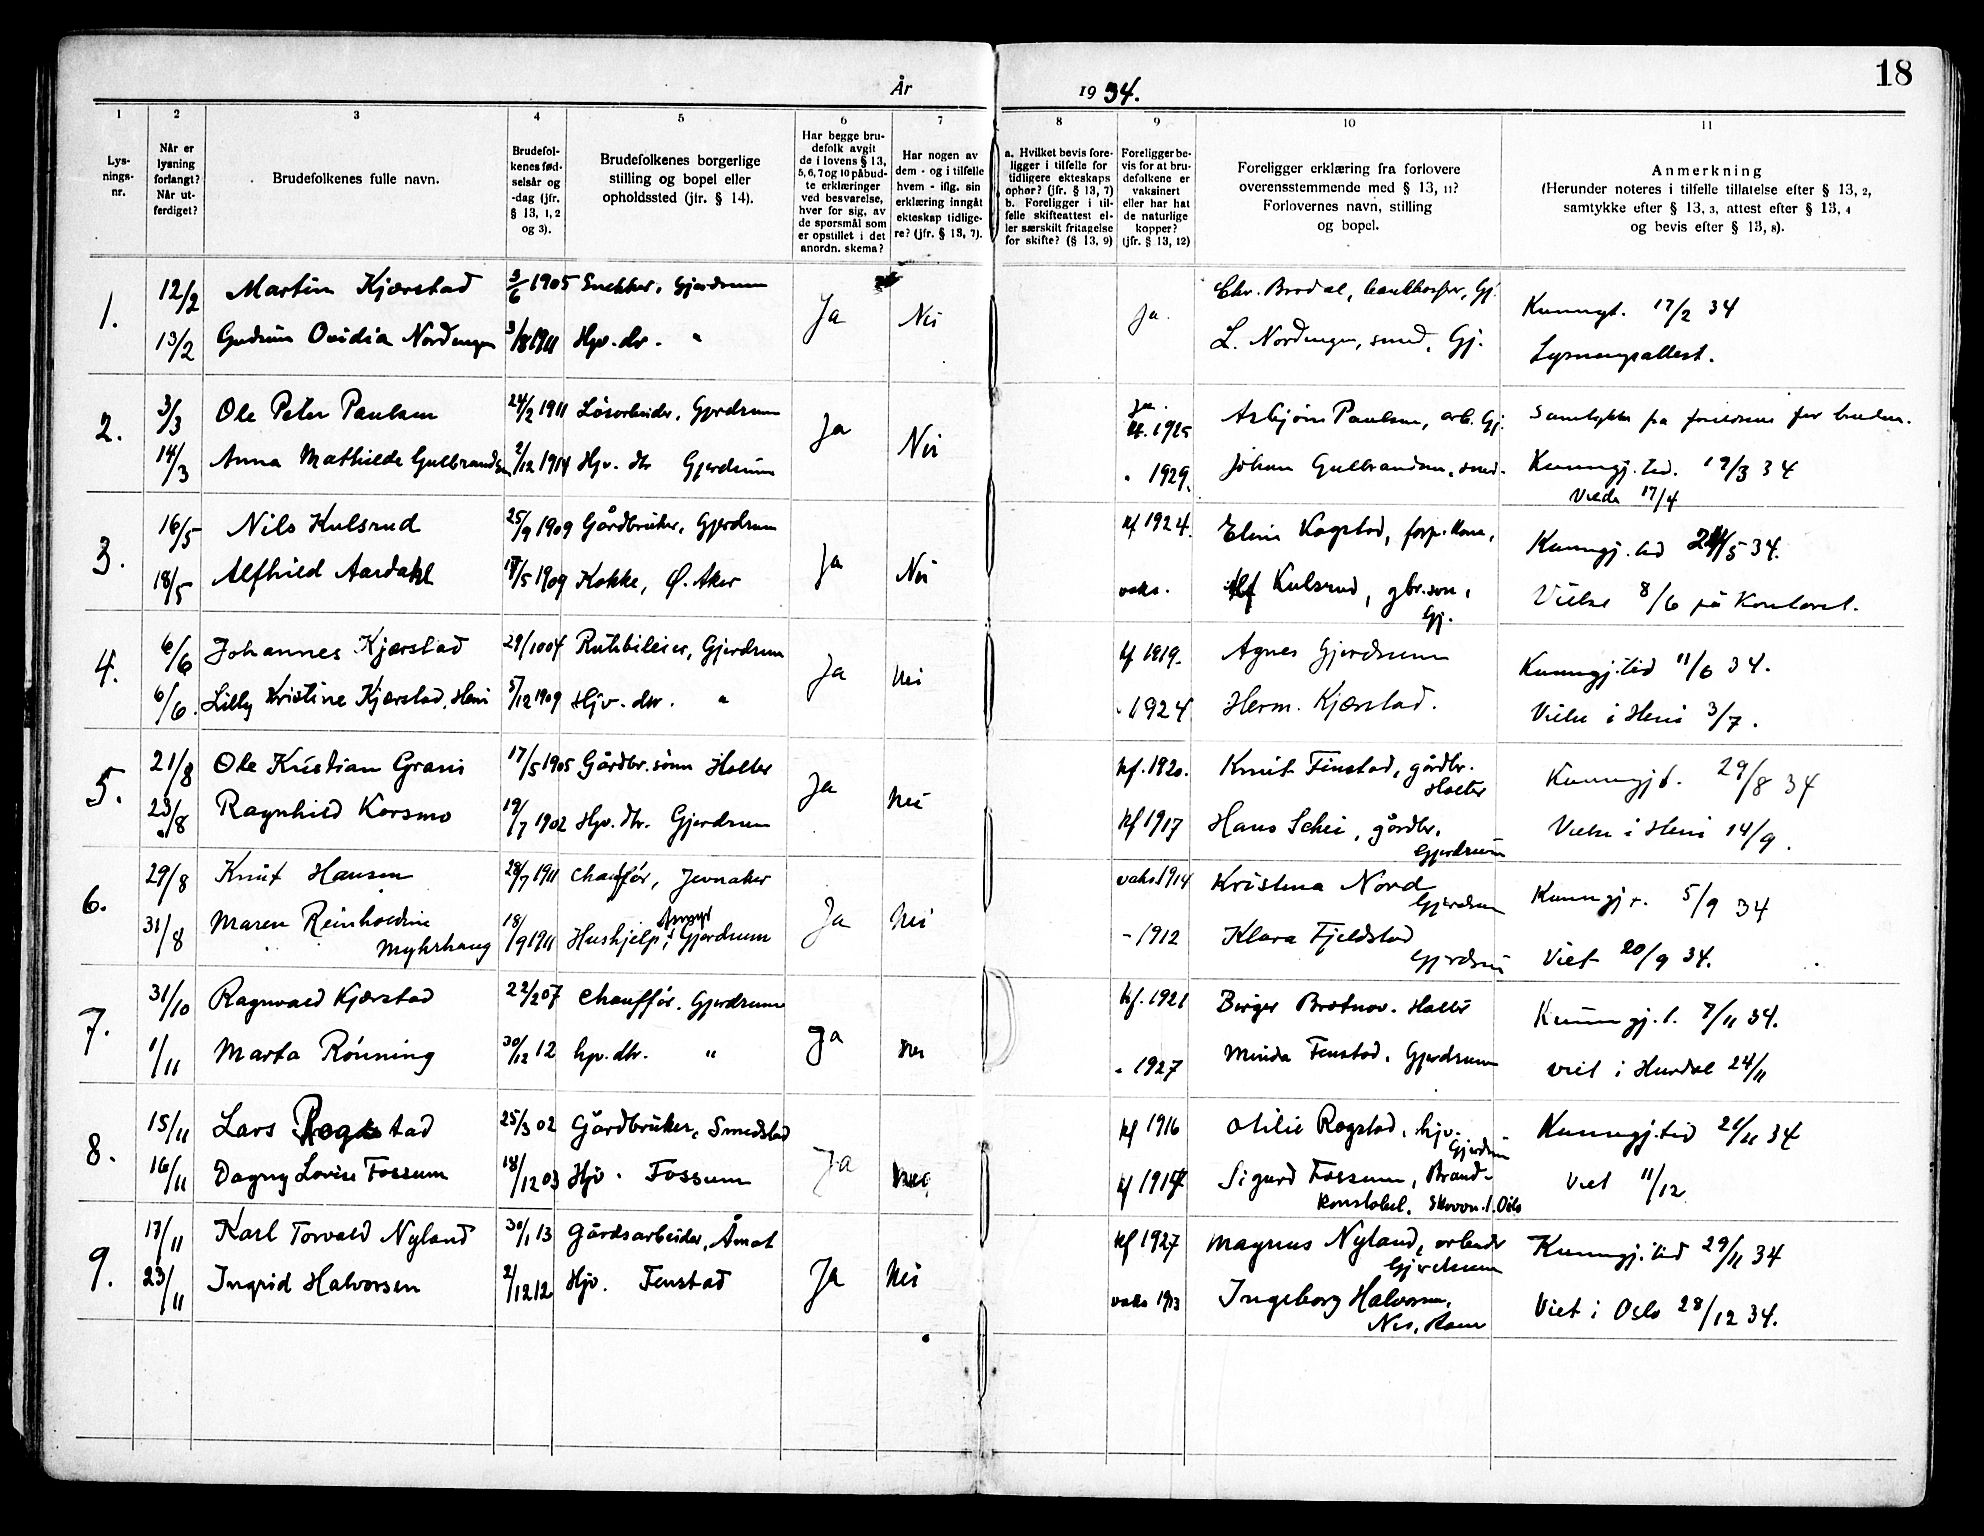 18
År 1934.
1 2 3 4 5 6 7 8 9 10 11
Lys-
nings-
nr.
Når er
lysning
forlangt?
Når ut-
ferdiget?
Brudefolkenes fulle navn.
Brudefol-
kenes fød-
selsår og
-dag (jfr.
§ 13, 1, 2
og 3).
Brudefolkenes borgerlige
stilling og bopel eller
opholdssted (jfr. § 14).
Har begge bru-
defolk avgit
de i lovens § 13,
5, 6, 7 og 10 påbud-
te erklæringer
ved besvarelse,
hver for sig, av
de spørsmål som
er opstillet i det
anordn. skema?
Har nogen av
dem - og i tilfelle
hvem - iflg. sin
erklæring inngåt
ekteskap tidlige-
re? (jfr. § 13, 7).
a. Hvilket bevis fore-
ligger i tilfelle for
tidligere ekteskaps
ophør? (jfr. § 13, 7)
b. Foreligger i til-
felle skifteattest el-
ler særskilt fritagelse
for skifte? (§ 13, 9)
Foreligger be-
vis for at bru-
defolkene er
vaksinert
eller har hat
de naturlige
kopper?
(jfr. § 13, 12)
Foreligger erklæring fra forlovere
overensstemmende med § 13, 11?
Forlovernes navn, stilling
og bopel.
Anmerkning
(Herunder noteres i tilfelle tillatelse efter § 13, 2,
samtykke efter § 13, 3, attest efter § 13, 4
og bevis efter § 13, 8).
1. 12/2 Martin Kjærstad 3/6 1905 Snekker, Gjerdrum Ja Nei Ja. Chr. Brodal, Gj. Kunngt. 17/2 34
13/2 Gudrun Ovidia Nordengen 3/8 1911 Hjv. dtr. " L. Nordengen, smed, Gj. Lysningsattest.
2. 3/3 Ole Peter Paulsen 24/2 1911 Løsarbeider, Gjerdrum Ja Nei Ja. kf. 1925 Asbjørn Paulsen, arb. Gj. Samtykke fra foreldrene for bruden.
14/3 Anna Mathilde Gulbrandsen 2/12 1914 Hjv. dtr Gjerdrum " 1929. Johan Gulbrandsen, smed. Kunngj. tid. 19/3 34
Viede 17/4
3. 16/5 Nils Kulsrud 25/9 1909 Gårdbruker, Gjerdrum Ja Nei kf 1924. Elise Kogstad, forp. kone, Kunngj. tid 24/5 34.
18/5 Alfhild Aardahl /5 1909 Kokke, Ø. Aker vaks. Alf Kulsrud, gbr. søn, Gj. Vielse 8/6 på Kontoret.
4. 6/6 Johannes Kjærstad 29/10 04 Rutebileier, Gjerdrum Ja Nei kf 1919. Agnes Gjerdrum Kunngj. tid 11/6 34.
6/6. Lilly Kristine Kjærstad, Heni 5/12 1909 Hjv. dtr. " " 1924 Herm. Kjærstad. Vielse i Heni 3/7.
5. 21/8 Ole Kristian Grasis 17/5 1905 Gårdbr. sønn Holter Ja Nei kf. 1920. Knut Finstad, gårdbr. Holter Kunngj t. 29/8 34
23/8 Ragnhild Korsmo 19/7 1902 Hjv. dtr. Gjerdrum kf 1917 Hans Schei, gårdbr. Gjerdrum Vielse i Heni 14/9.
6. 29/8 Knut Hansen 28/7 1911 Chauffør, Jevnaker Ja Nei vaks 1914 Kristina Nord Gjerdrum Kunngj t. 5/9 34
31/8 Maren Reinholdine Myhrhaug 18/9 1911 Hushjelp, Gjerdrum - 1912 Klara Fjeldstad Gjerdrum Viet 20/9 34.
7. 31/10 Ragnvald Kjærstad 22/2 07 Chauffør. Gjerdrum Ja Nei kf. 1921 Birger Bratnov. Holter Kunngj. t. 7/11 34.
1/11 Marta Rønning 30/12 12 hjv. dtr. " " 1927 Minda Fenstad. Gjerdrum viet i Hurdal 24/11
8. 15/11 Lars Rogstad 25/3 02 Gårdbruker, Smedstad Ja Nei kf 1916 Otilie Rogstad, hjv. Gjerdrum Kunngj. tid 21/11 34
16/11 Dagny Lovise Fossum 18/12 03 Hjv. Fossum kf 1917 Sigurd Fossum, Brand-
konstabel. Oslo Viet 11/12
9. 17/11 Karl Torvald Nyland 30/1 13 Gårdsarbeider, Åmot Ja Nei kf 1927 Magnus Nyland, arbeider Gjerdrum Kunngj. tid 29/11 34
23/11 Ingrid Halvorsen 2/12 12 Hjv. Fenstad vaks 1913 Ingeborg Halvorsen, Nes, Rom Viet i Oslo 28/12 34.